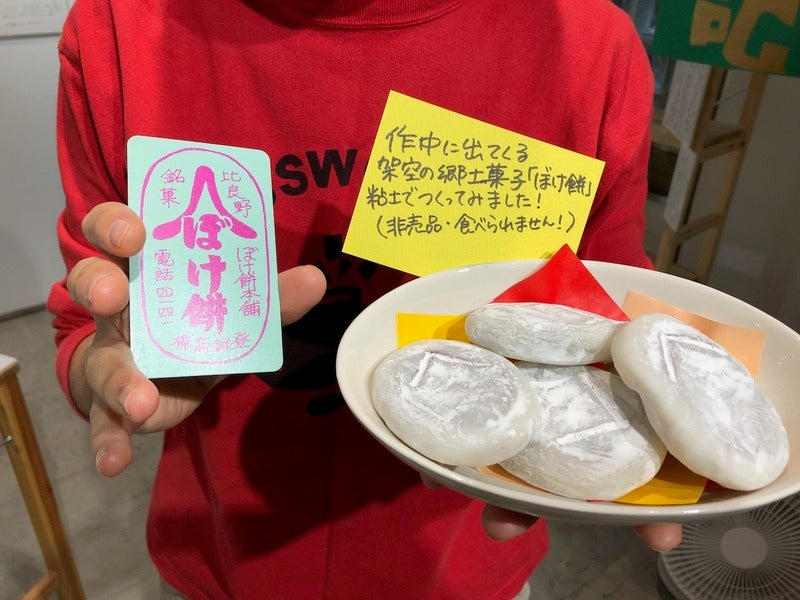 銘菓
比良野
ぼけ餅
ぼけ餅本舗
電話四一四一
標商録登
作中に出てくる
架空の郷土菓子「ぼけ餅」
粘土でつくってみました！
(非売品・食べられません！)
SW